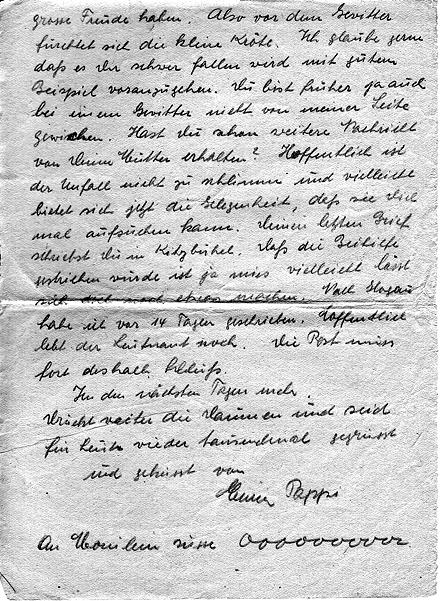 grosse Freude haben. Also vor dem Gewitter
fürchtet sich die kleine Kröte. Ich glaube gerne
daß es Dir schwer fallen wird mit gutem
Beispiel voranzugehen. Du bist früher ja auch
bei einem Gewitter nicht von meiner Seite
gewichen. Hast Du schon weitere Nachricht
von Deiner Mutter erhalten? Hoffentlich ist
der Unfall nicht zu schlimm und vielleicht
bietet sich jetzt die Gelegenheit, daß sie Dich
mal aufsuchen kann. Deinen letzten Brief
schriebst Du in Kitzbühel. Daß die Beihilfe
gestrichen wurde ist ja mies vielleicht lässt
sich doch noch etwas machen. Nach Glogau
habe ich vor 14 Tagen geschrieben. Hoffentlich
lebt der Leutnant noch. Die Post muss
fort deshalb Schluß.
In den nächsten Tagen mehr.
Drückt weiter die Daumen und seid
für heute wieder tausendmal gegrüsst
und geküsst von
Pappi
An süsse ooooooooo